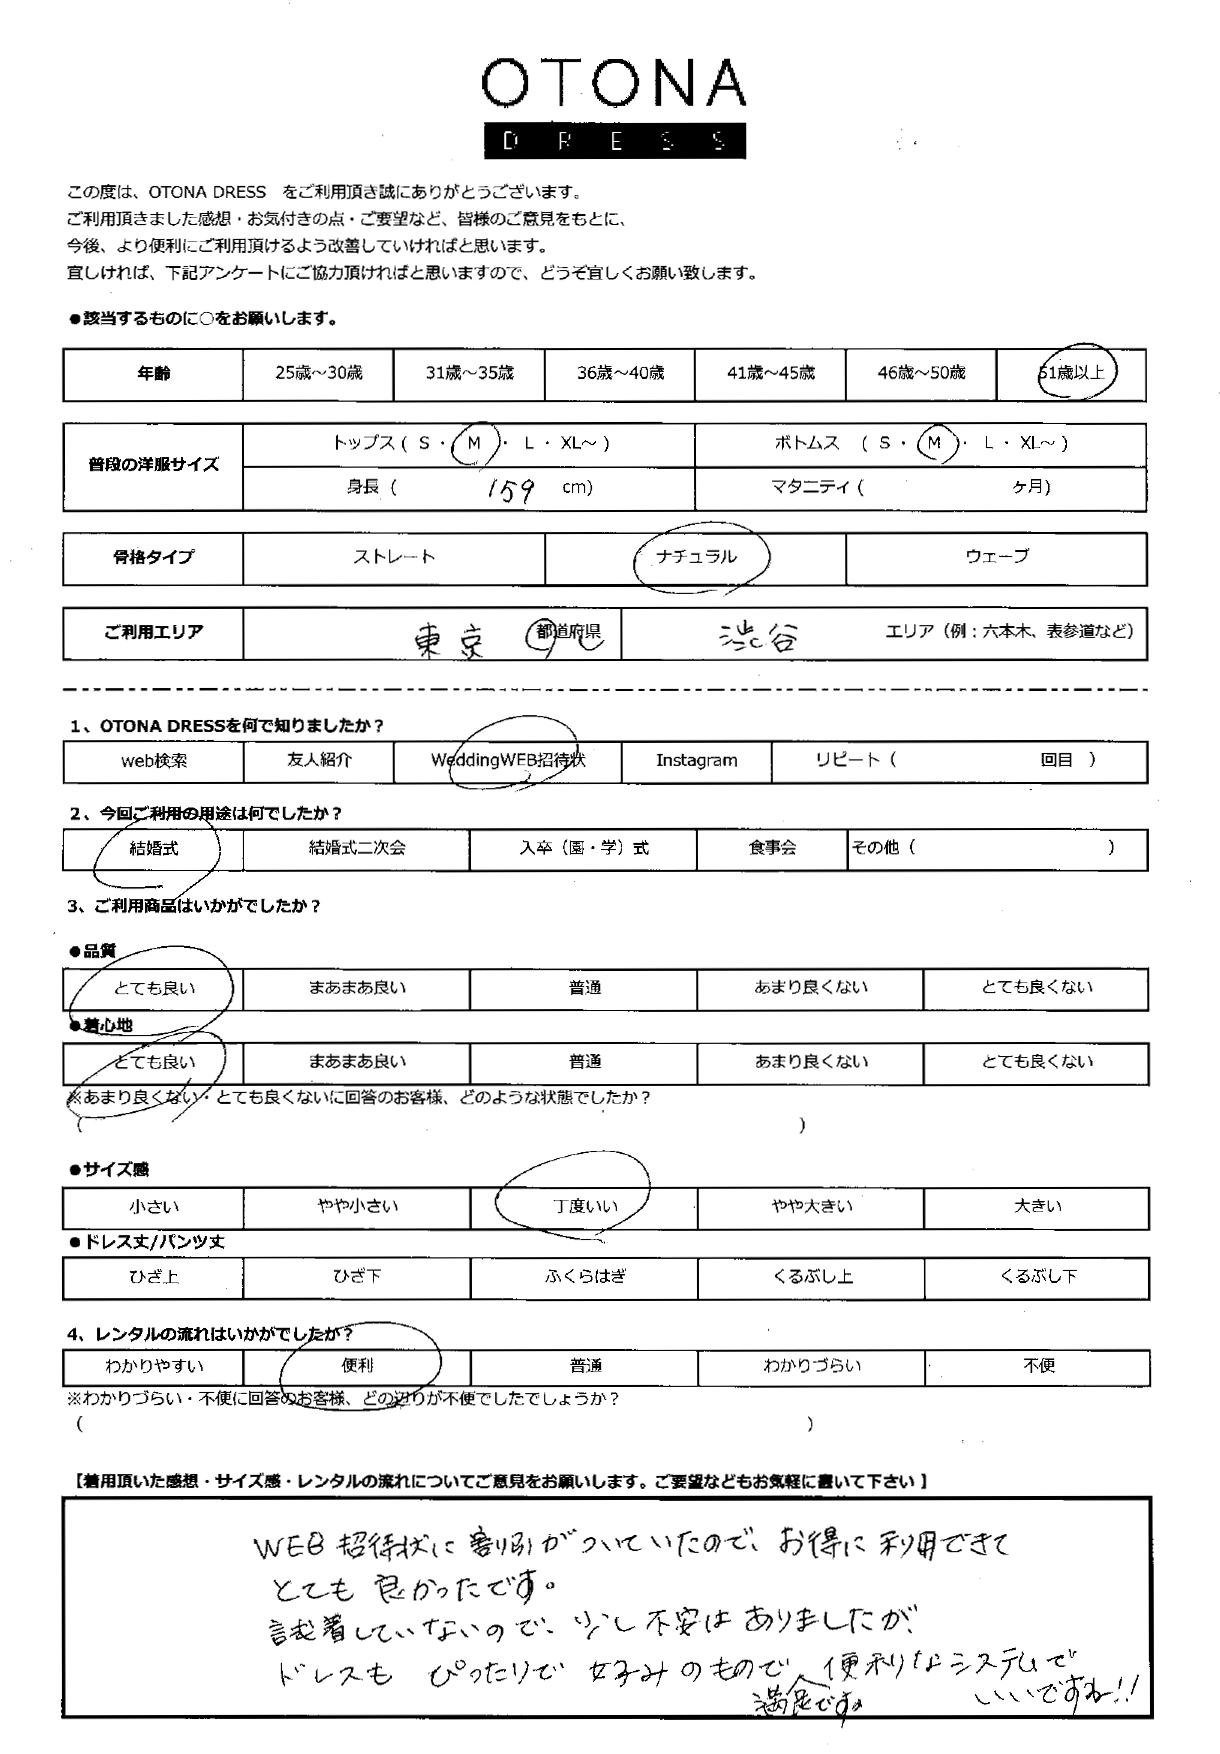 OTONA
DRESS
この度は、OTONA DRESS をご利用頂き誠にありがとうございます。
ご利用頂きました感想・お気付きの点・ご要望など、皆様のご意見をもとに、
今後、より便利にご利用頂けるよう改善していければと思います。
宜しければ、下記アンケートにご協力頂ければと思いますので、どうぞ宜しくお願い致します。
●該当するものに○をお願いします。
年齢 25歳～30歳 31歳～35歳 36歳～40歳 41歳～45歳 46歳～50歳 51歳以上
普段の洋服サイズ トップス ( S ・ M ・ L ・ XL～ ) ボトムス ( S ・ M ・ L ・ XL～ )
身長 ( 159 cm) マタニティ ( ヶ月)
骨格タイプ ストレート ナチュラル ウェーブ
ご利用エリア 東京 都道府県 渋谷 エリア（例：六本木、表参道など）
1、OTONA DRESSを何で知りましたか？
web検索 友人紹介 WeddingWEB招待状 Instagram リピート（ 回目 ）
2、今回ご利用の用途は何でしたか？
結婚式 結婚式二次会 入卒（園・学）式 食事会 その他（ ）
3、ご利用商品はいかがでしたか？
●品質
とても良い まあまあ良い 普通 あまり良くない とても良くない
●着心地
とても良い まあまあ良い 普通 あまり良くない とても良くない
※あまり良くない・とても良くないに回答のお客様、どのような状態でしたか？
( )
●サイズ感
小さい やや小さい 丁度いい やや大きい 大きい
●ドレス丈/パンツ丈
ひざ上 ひざ下 ふくらはぎ くるぶし上 くるぶし下
4、レンタルの流れはいかがでしたか？
わかりやすい 便利 普通 わかりづらい 不便
※わかりづらい・不便に回答のお客様、どの辺りが不便でしたでしょうか？
( )
【着用頂いた感想・サイズ感・レンタルの流れについてご意見をお願いします。ご要望などもお気軽に書いて下さい】
WEB招待状に割引がついていたので、お得に利用できて
とても良かったです。
試着していないので、少し不安はありましたが、
ドレスもぴったりで好みのもので、便利なシステムで
満足です。 いいですね!!